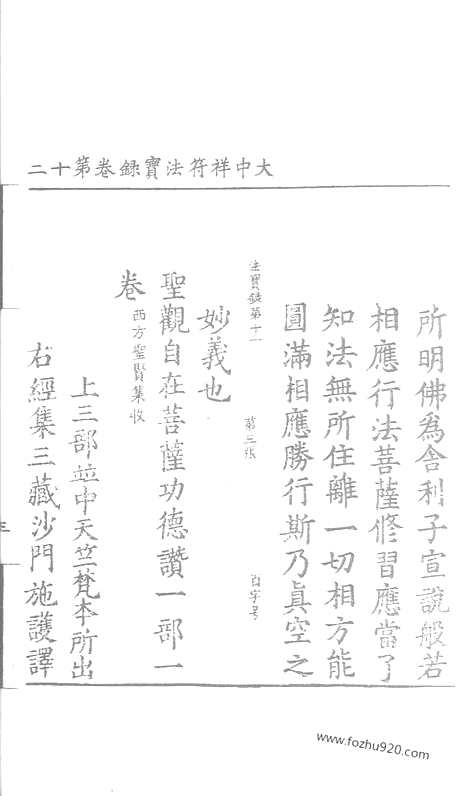 大中祥符法寶錄卷第十二
所明佛為舍利子宣說般若
相應行法菩薩修習應當了
知法無所住離一切相方能
圓滿相應勝行斯乃真空之
法寶錄第十一 第三張 百字号
妙義也
聖觀自在菩薩功德讚一部一
卷 西方聖賢集收
上三部並中天竺梵本所出
右經集三藏沙門施護譯
www.fozhu920.com